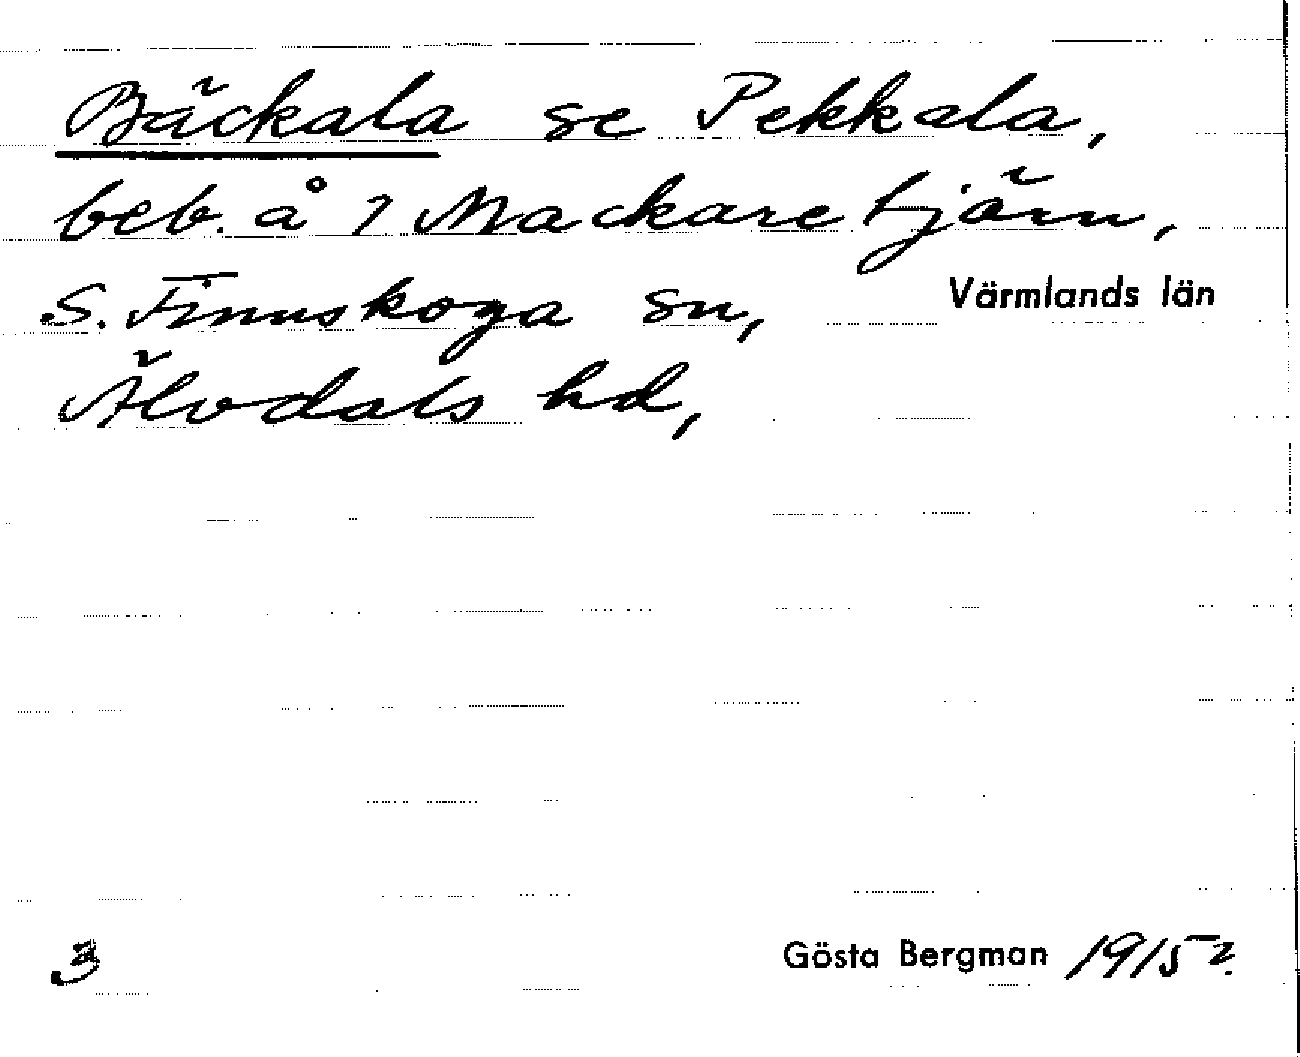 Bäckala se Pekkala,
beb. å 1 Mackaretjärn,
S. Finnskoga sn, Värmlands län
Älvdals hd,
3 Gösta Bergman 1915?